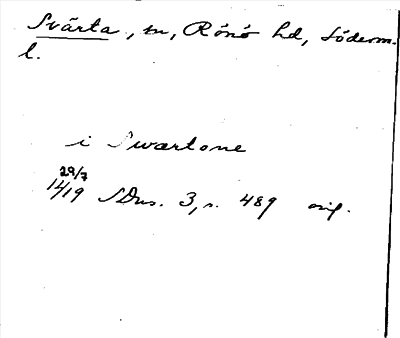 Svärta, sn, Rönö hd, Söderm.
l.
i Swartone
29/7
1419 SDns. 3, s. 489 orig.